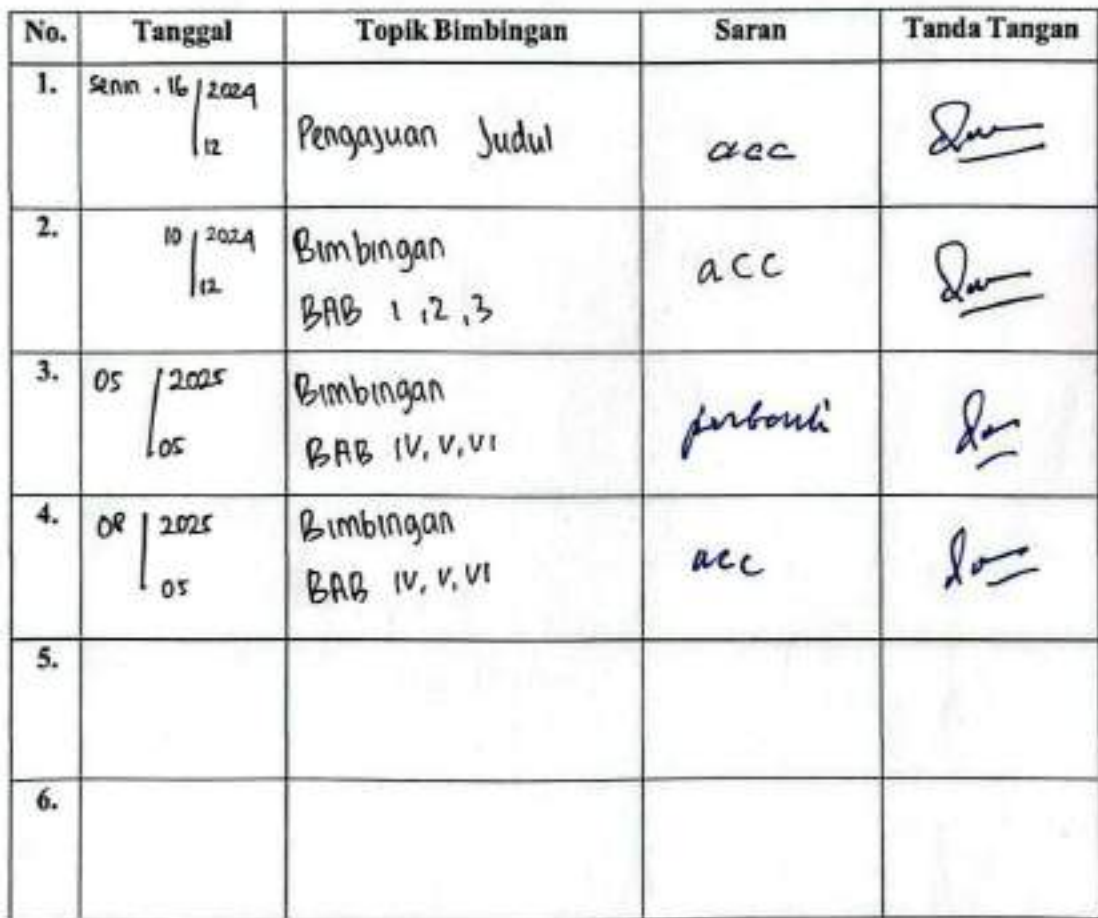 No. Tanggal Topik Bimbingan Saran Tanda Tangan
1. Senin . 16 / 2024
12
Pengajuan Judul acc
2. 10 / 2024
12
Bimbingan
BAB 1 , 2 , 3
acc
3. 05 / 2025
05
Bimbingan
BAB IV, V, VI
4. 08 / 2025
05
Bimbingan
BAB IV, V, VI
acc
5.
6.